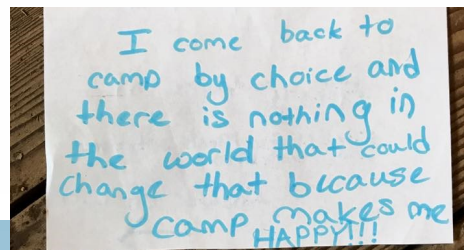 I come back to
camp by choice and
there is nothing in
the world that could
change that because
camp makes me
HAPPY!!!